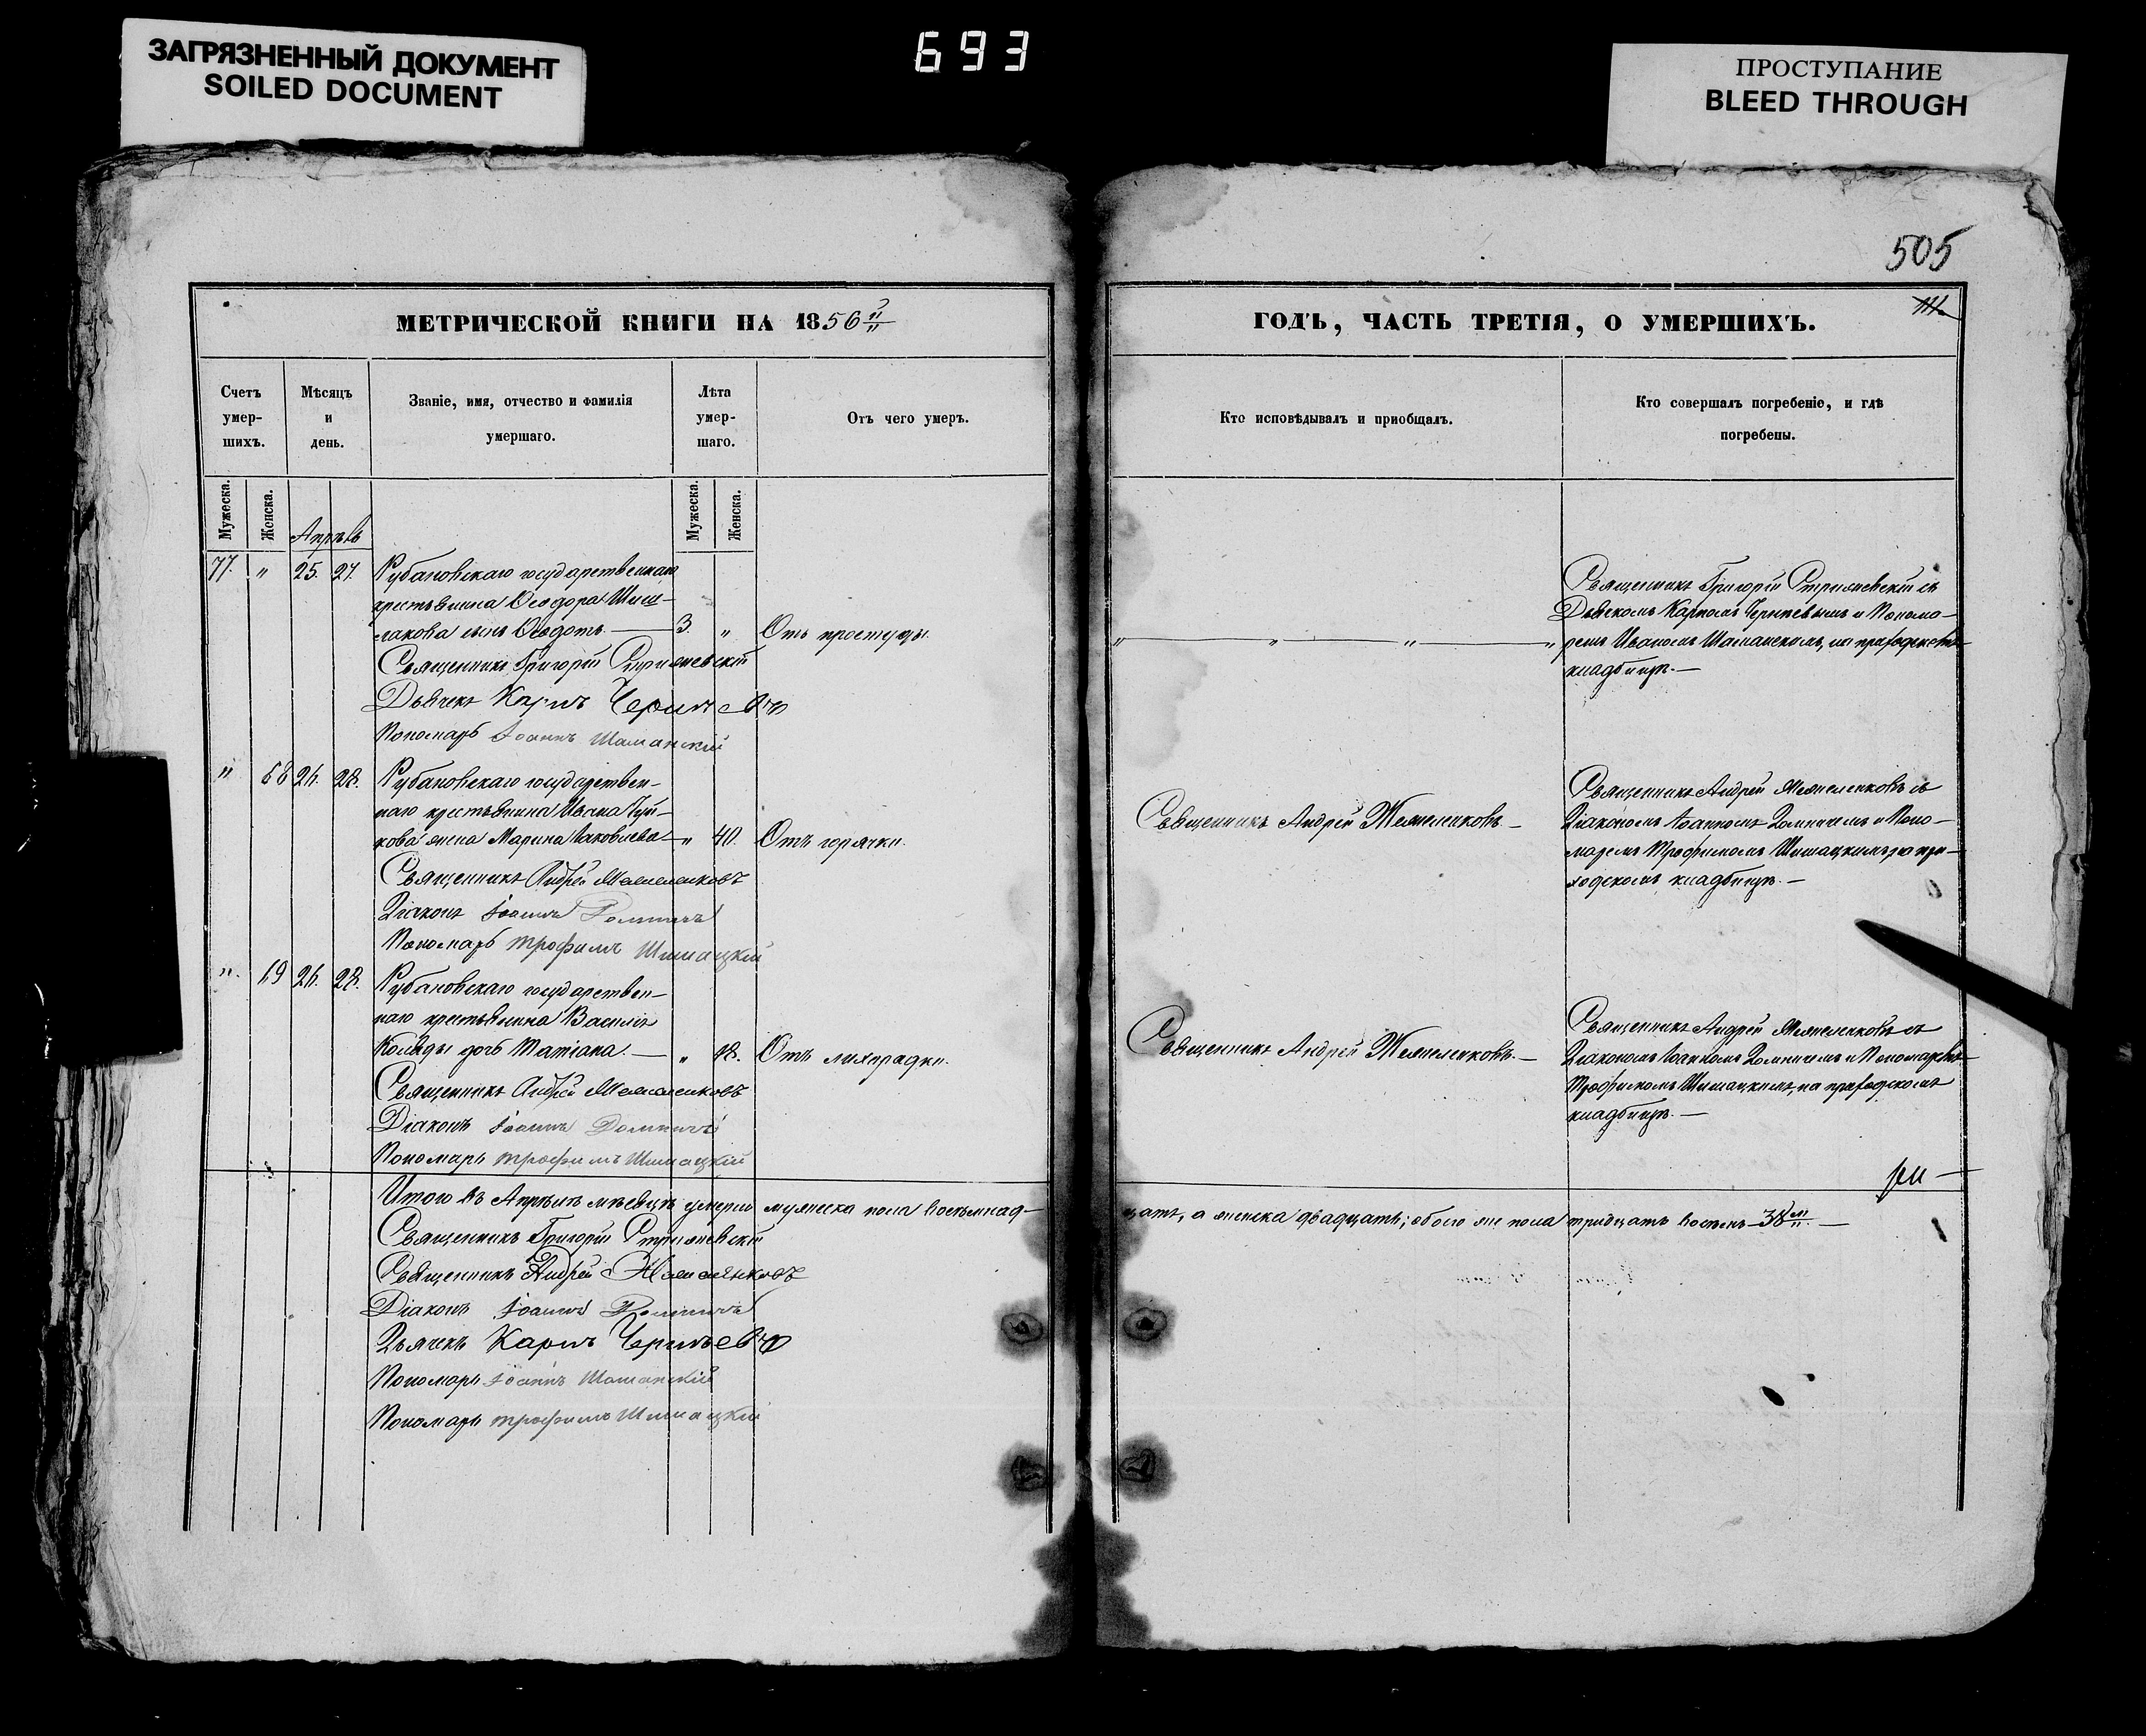 ЗАГРЯЗНЕННЫЙ ДОКУМЕНТ
SOILED DOCUMENT
693
ПРОСТУПАНИЕ
BLEED THROUGH
505
МЕТРИЧЕСКОЙ КНИГИ НА 1856й
Счетъ умер- шихъ.
Мѣсяцъ и день.
Званіе, имя, отчество и фамилія
умершаго.
Лѣта умер- шаго.
Отъ чего умеръ.
Мужеска. Женска.
Мужеска. Женска.
77. " 25. 27. Рубановскаго государственнаго
крестьянина Ѳеодора Шиш-
лакова сынъ Ѳеодотъ. — 3. " Отъ простуды.
Священникъ Григорій Стрижевскій
Дьячекъ Карпъ
Пономарь Іоаннъ Шаманскій
" 68 26. 28. Рубановскаго государствен-
наго крестьянина Ивана
кова жена Марина Іаковлева — " 40. Отъ горячки.
Священникъ Андрей
Діаконъ Іоаннъ
Пономарь Трофимъ Шишацкій
" 69 26. 28. Рубановскаго государствен-
наго крестьянина Василія
Коляды дочь Татіана. — " 18. Отъ лихорадки.
Священникъ Андрей
Діаконъ Іоаннъ
Пономарь Трофимъ Шишацкій
Итого въ Апрѣлѣ мѣсяцѣ умерло мужеска пола восемнад-
Священникъ Григорій Стрижевскій
Священникъ Андрей
Діаконъ Іоаннъ
Дьячекъ Карпъ
Пономарь Іоаннъ Шаманскій
Пономарь Трофимъ Шишацкій
ГОДЪ, ЧАСТЬ ТРЕТІЯ, О УМЕРШИХЪ.
Кто исповѣдывалъ и пріобщалъ.
Кто совершалъ погребеніе, и гдѣ
погребены.
Священникъ Григорій Стрижевскій съ
Дьячкомъ Карпомъ и Понома-
" " " " ремъ Иваномъ Шаманскимъ, на приходскомъ
кладбищѣ. —
Священникъ Андрей съ
Священникъ Андрей — Діакономъ Іоанномъ и Поно-
маремъ Трофимомъ Шишацкимъ на при-
ходскомъ кладбищѣ. —
Священникъ Андрей съ
Священникъ Андрей — Діакономъ Іоанномъ и Пономаремъ
Трофимомъ Шишацкимъ, на приходскомъ
кладбищѣ. —
цать, а женска двадцать; обоего же пола тридцать восемь — 38 —